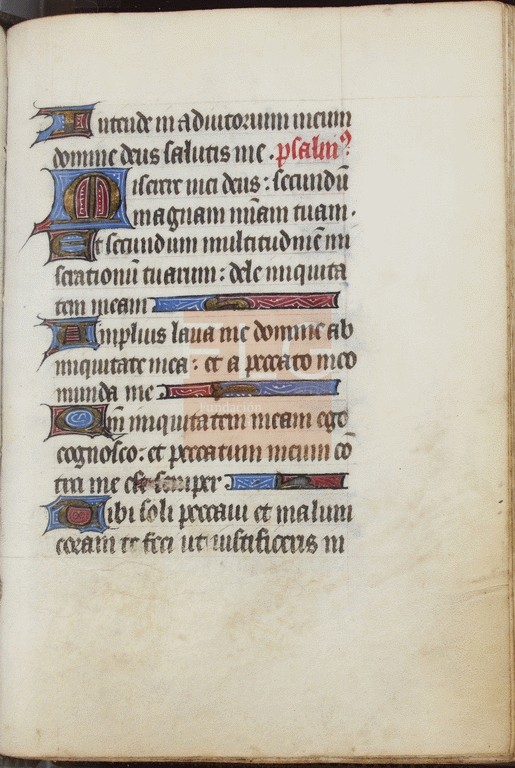 Intende in adiutorium meum
domine deus salutis me . psalmꝰ
Miserere mei deus : secundū
magnam mīam tuam .
Et secundum multitudinē mi
serationū tuarum : dele iniquita
tem meam
Amplius laua me domine ab
iniquitate mea : et a peccato meo
munda me .
Qm̄ iniquitatem meam ego
cognosco : et peccatum meum cō
tra me est semper .
Tibi soli peccaui et malum
coram te feci ut iustificeris in
Fundación